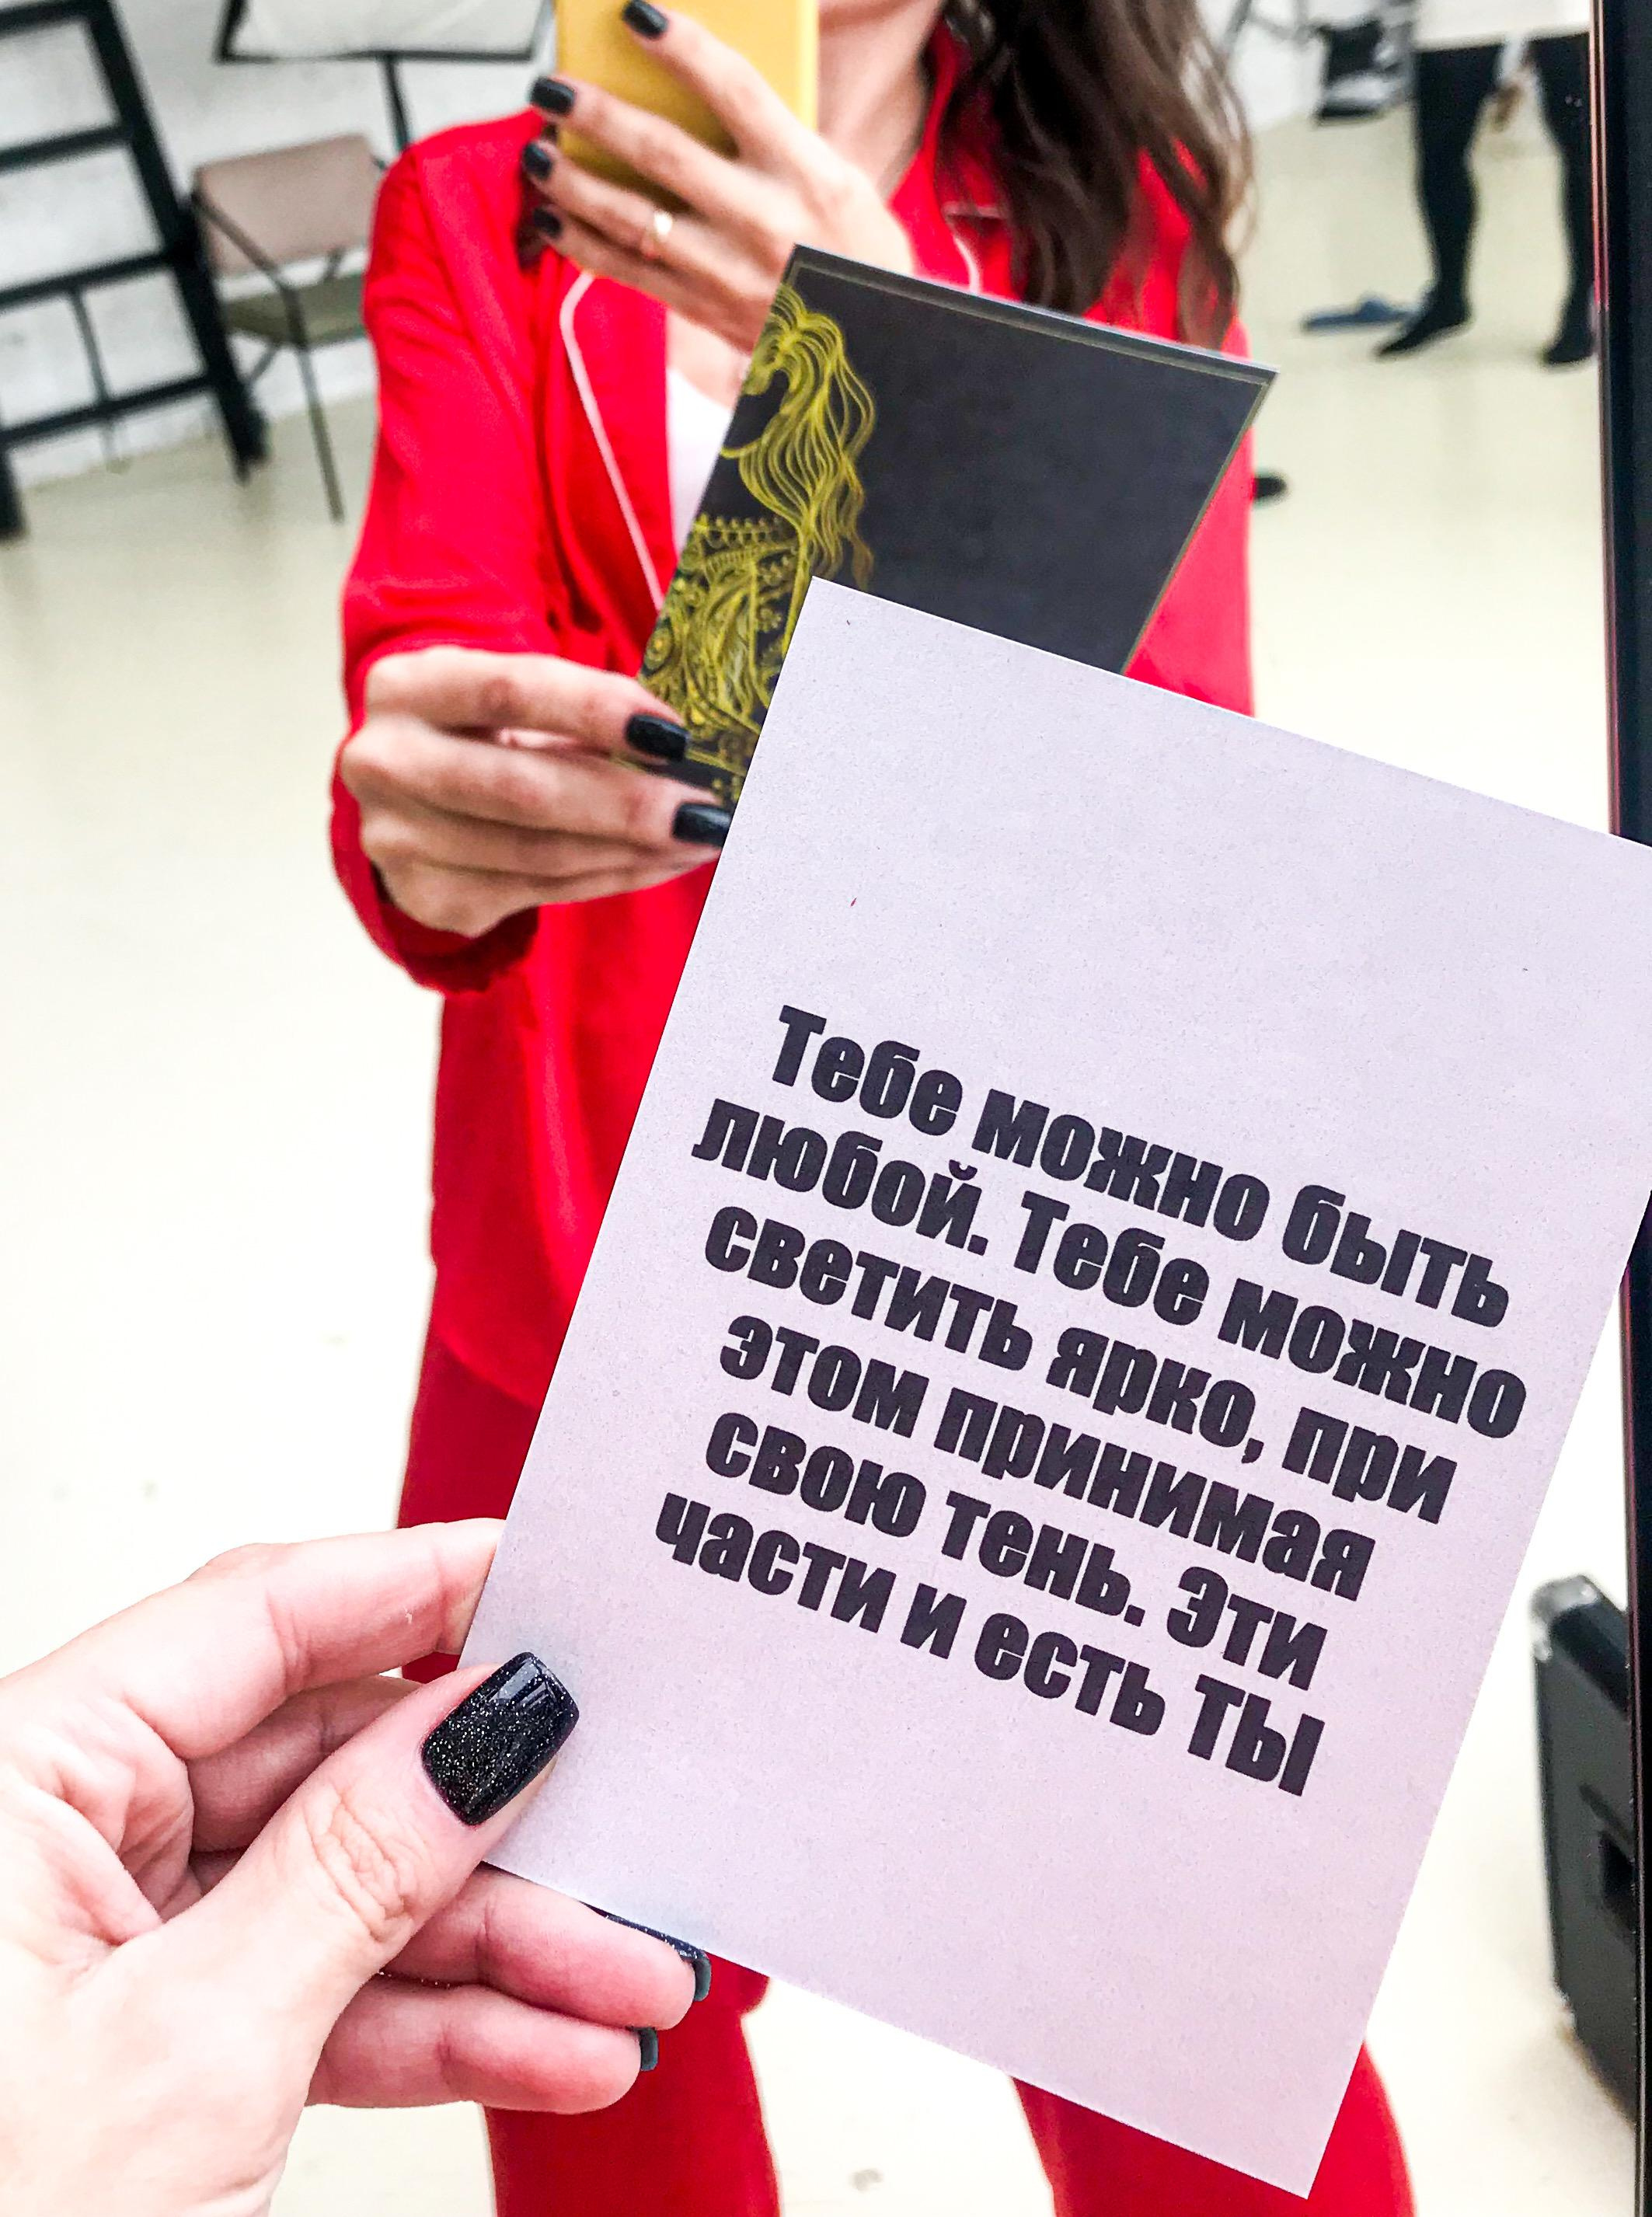 Тебе можно быть
любой. Тебе можно
светить ярко, при
этом принимая
свою тень. Эти
части и есть ТЫ